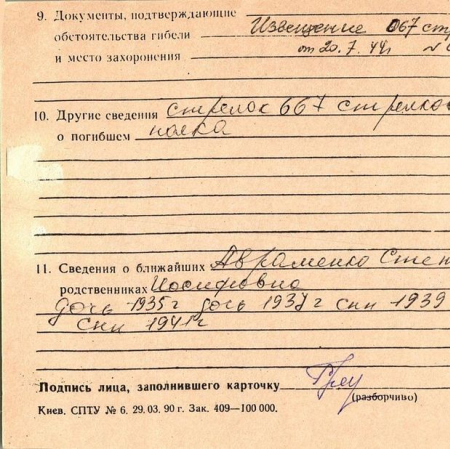 9. Документы, подтверждающие
обстоятельства гибели Извещение 067 стр
и место захоронения от 20.7.44г №
10. Другие сведения стрелок 667 стрелко
о погибшем полка
11. Сведения о ближайших Авраменко Степ
родственниках Иосифовна
дочь 1935г дочь 1937г сын 1939
сын 1941г
Подпись лица, заполнившего карточку
(разборчиво)
Киев, СПТУ № 6. 29.03.90 г. Зак. 409—100 000.